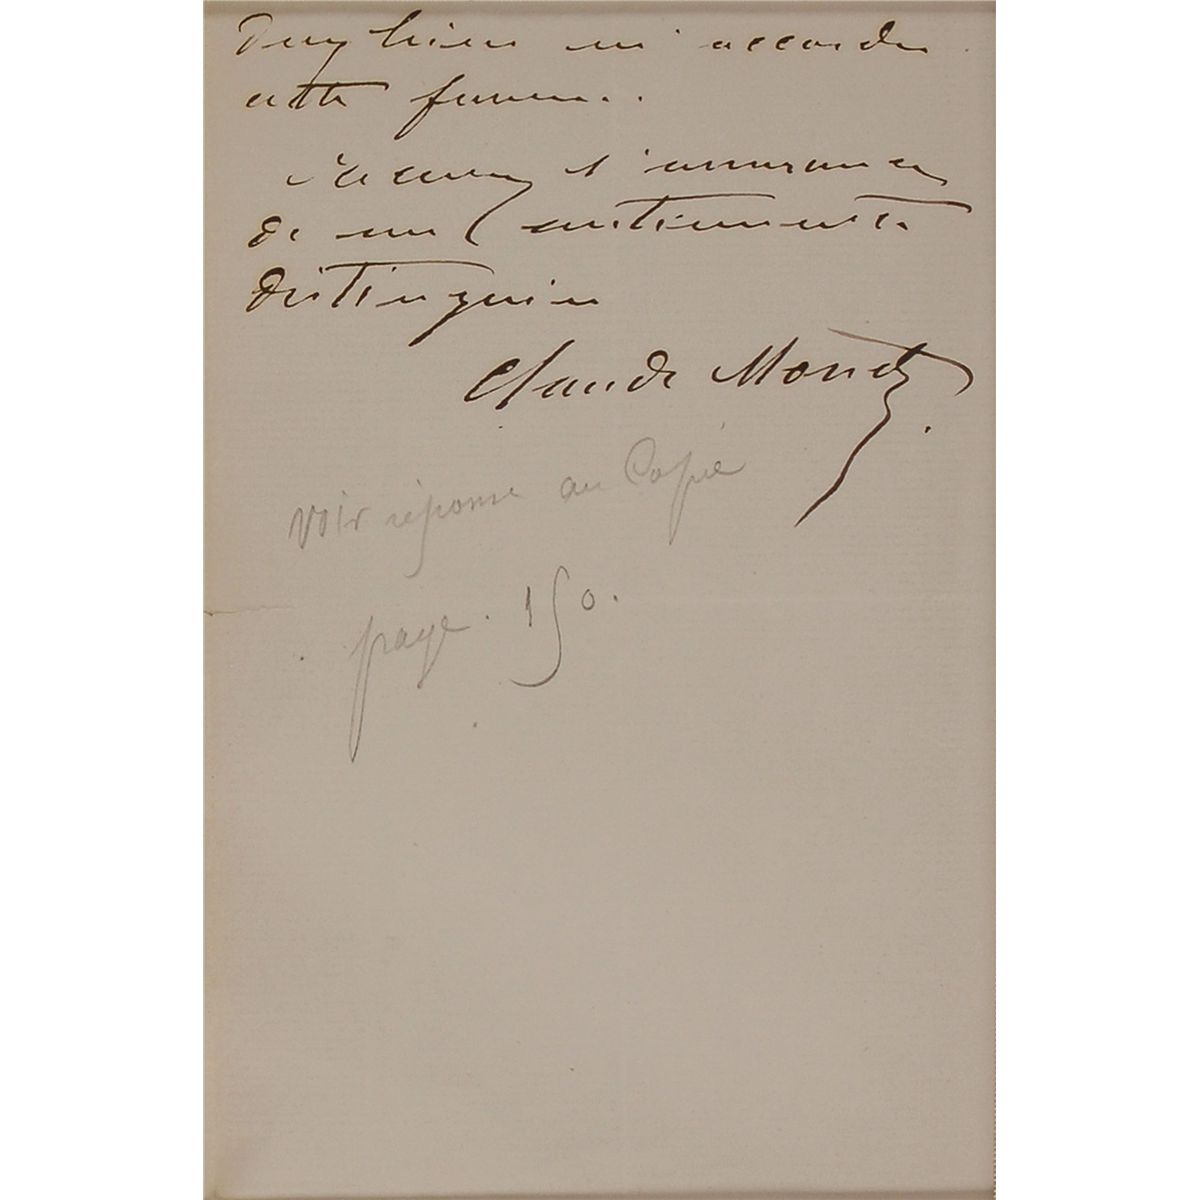 bien m'accorder
cette faveur.
Recevez l'assurance
de mes sentiments
distingués
Claude Monet
Voir réponse au Copie
page. 150.